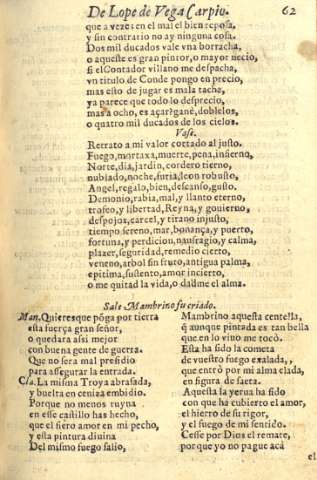 De Lope de Vega Carpio. 62
que a vezes en el mal el bien reposa,
y sin contrario no ay ninguna cosa.
Dos mil ducados vale vna borracha,
o aqueste es gran pintor, o mayor necio,
si el Contador villano me despacha,
vn titulo de Conde pongo en precio,
mas esto de jugar es mala tacha,
ya parece que todo lo desprecio,
mas a ocho, es açar? gane, doblelos,
o quatro mil ducados de los cielos.
Vase.
Retrato a mi valor cortado al justo.
Fuego, mortaxa, muerte, pena, infierno,
Norte, dia, jardin, cordero tierno,
nublado, noche, furia, leon robusto,
Angel, regalo, bien, descanso, gusto.
Demonio, rabia, mal, y llanto eterno,
trofeo, y libertad, Reyna, y gouierno,
despojos, carcel, y tirano injusto,
tiempo sereno, mar, bonança, y puerto,
fortuna, y perdicion, naufragio, y calma,
plazer, seguridad, remedio cierto,
veneno, arbol sin fruto, antigua palma,
epitima, sustento, amor incierto,
o me quitad la vida, o dadme el alma.
Sale Mambrino su criado.
Man. Quieres que pōga por tierra
esta fuerça gran señor,
o quedara assi mejor
con buena gente de guerra.
Que no sera mal presidio
para assegurar la entrada.
La misma Troya abrasada,
y buelta en ceniza embidio.
Porque no menos ruyna
en esse castillo has hecho,
que el fiero amor en mi pecho,
y esta pintura diuina
Del mismo fuego salio,
Mambrino aquesta centella,
q̃ aunque pintada es tan bella
que en lo viuo me tocò.
Esta ha sido la cometa
de vuestro fuego exalada,
que entrò por mi alma elada,
en figura de saeta.
Aquesta la yerua ha sido
con que ha cubierto el amor,
el hierro de su rigor,
y el fuego de mi sentido.
Cesse por Dios el remate,
porque yo no pague acà
el